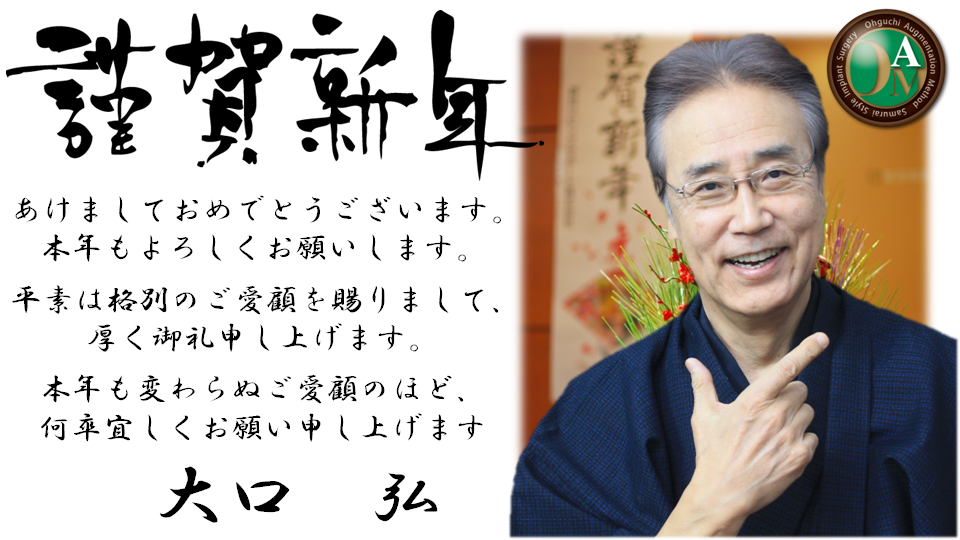 謹賀新年
あけましておめでとうございます。
本年もよろしくお願いします。
平素は格別のご愛顧を賜りまして、
厚く御礼申し上げます。
本年も変わらぬご愛顧のほど、
何卒宜しくお願い申し上げます
大口 弘
謹賀新年
Ohguchi Augmentation Method Samurai Style Implant Surgery
OAM